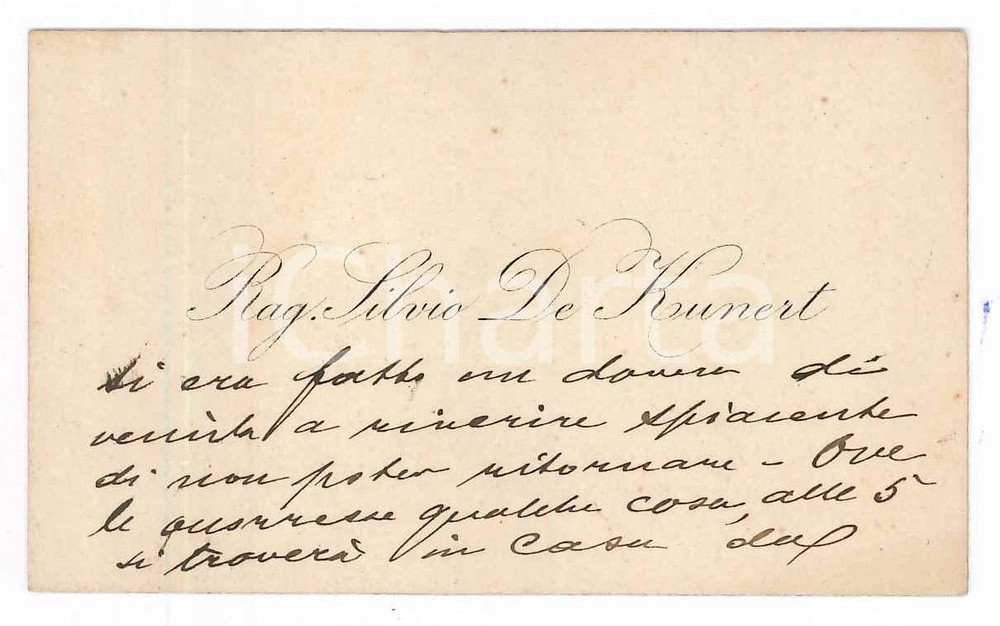 Rag. Silvio De Kunert
si era fatto un dovere di
venirla a riverire spiacente
di non poter ritornare - Ove
le occorresse qualche cosa, alle 5
si troverà in casa del
iCharta